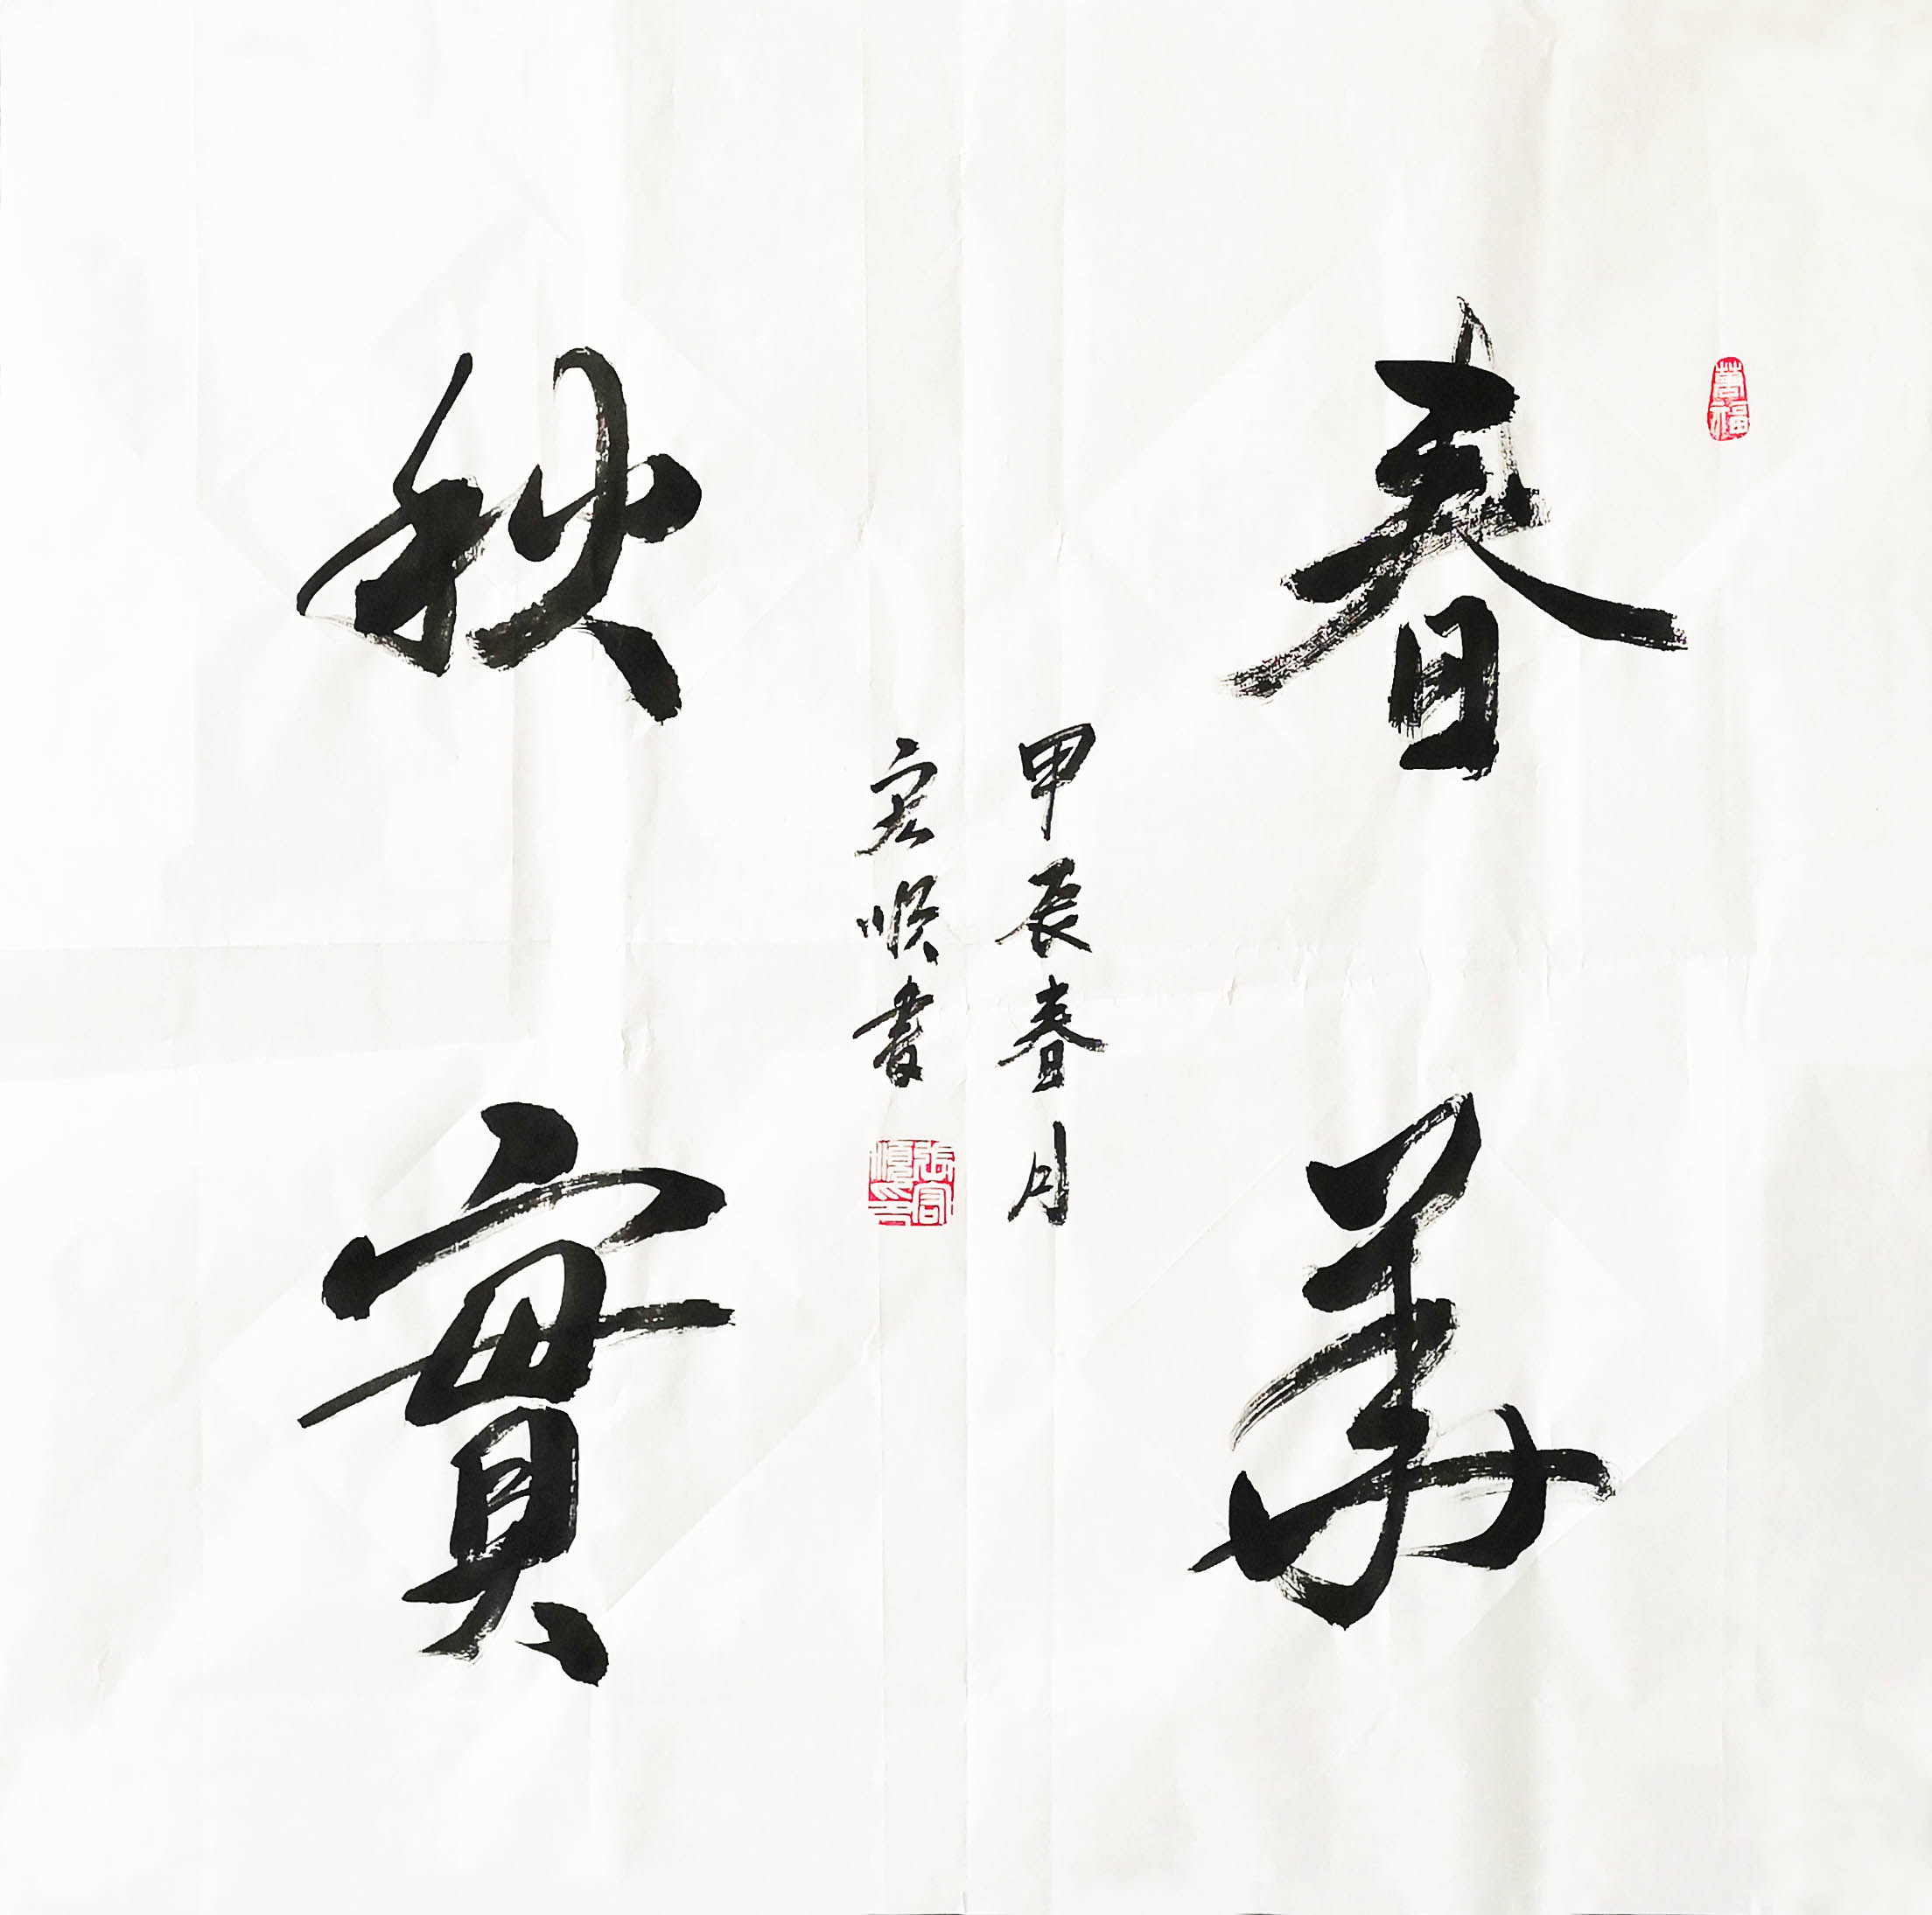 春華
秋實
甲辰春月
宏順書
萬福